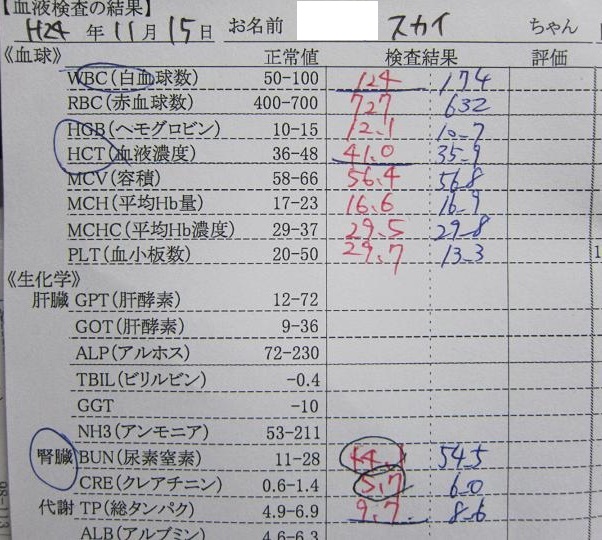 【血液検査の結果】
H24 年 11 月 15 日 お名前 スカイ ちゃん
《血球》 正常値 検査結果 評価
WBC(白血球数) 50-100 124 174
RBC(赤血球数) 400-700 727 632
HGB(ヘモグロビン) 10-15 12.1 10.7
HCT(血液濃度) 36-48 41.0 35.9
MCV(容積) 58-66 56.4 56.8
MCH(平均Hb量) 17-23 16.6 16.9
MCHC(平均Hb濃度) 29-37 29.5 29.8
PLT(血小板数) 20-50 29.7 13.3
《生化学》
肝臓 GPT(肝酵素) 12-72
GOT(肝酵素) 9-36
ALP(アルホス) 72-230
TBIL(ビリルビン) -0.4
GGT -10
NH3(アンモニア) 53-211
腎臓 BUN(尿素窒素) 11-28 44.1 54.5
CRE(クレアチニン) 0.6-1.4 5.7 6.0
代謝 TP(総タンパク) 4.9-6.9 9.7 8.6
ALB(アルブミン) 4.6-6.3